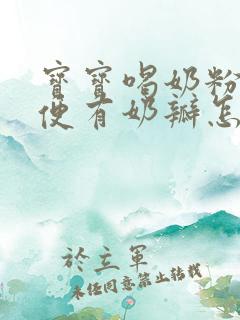 寶寶喝奶粉
便有奶瓣怎
於立軍
未經同意禁止轉載